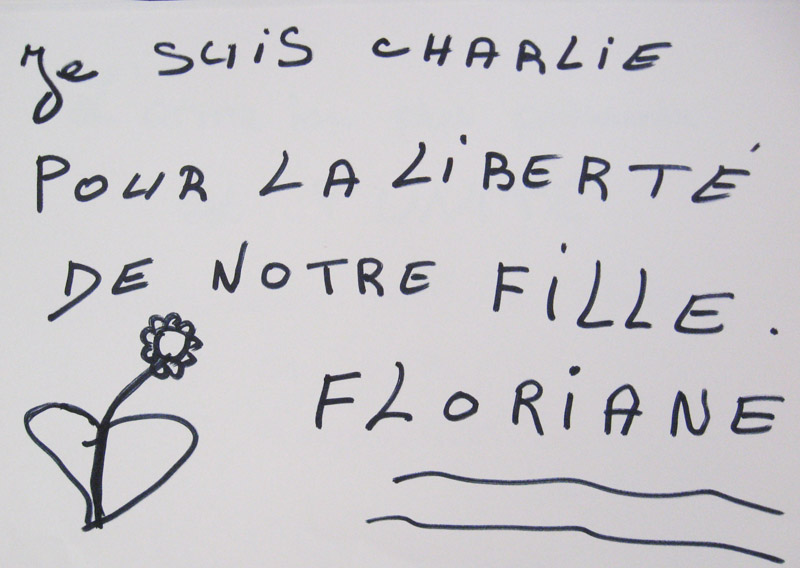 Je SUiS CHARLiE
POUR LA LiBERTÉ
DE NOTRE FiLLE.
FLORiANE